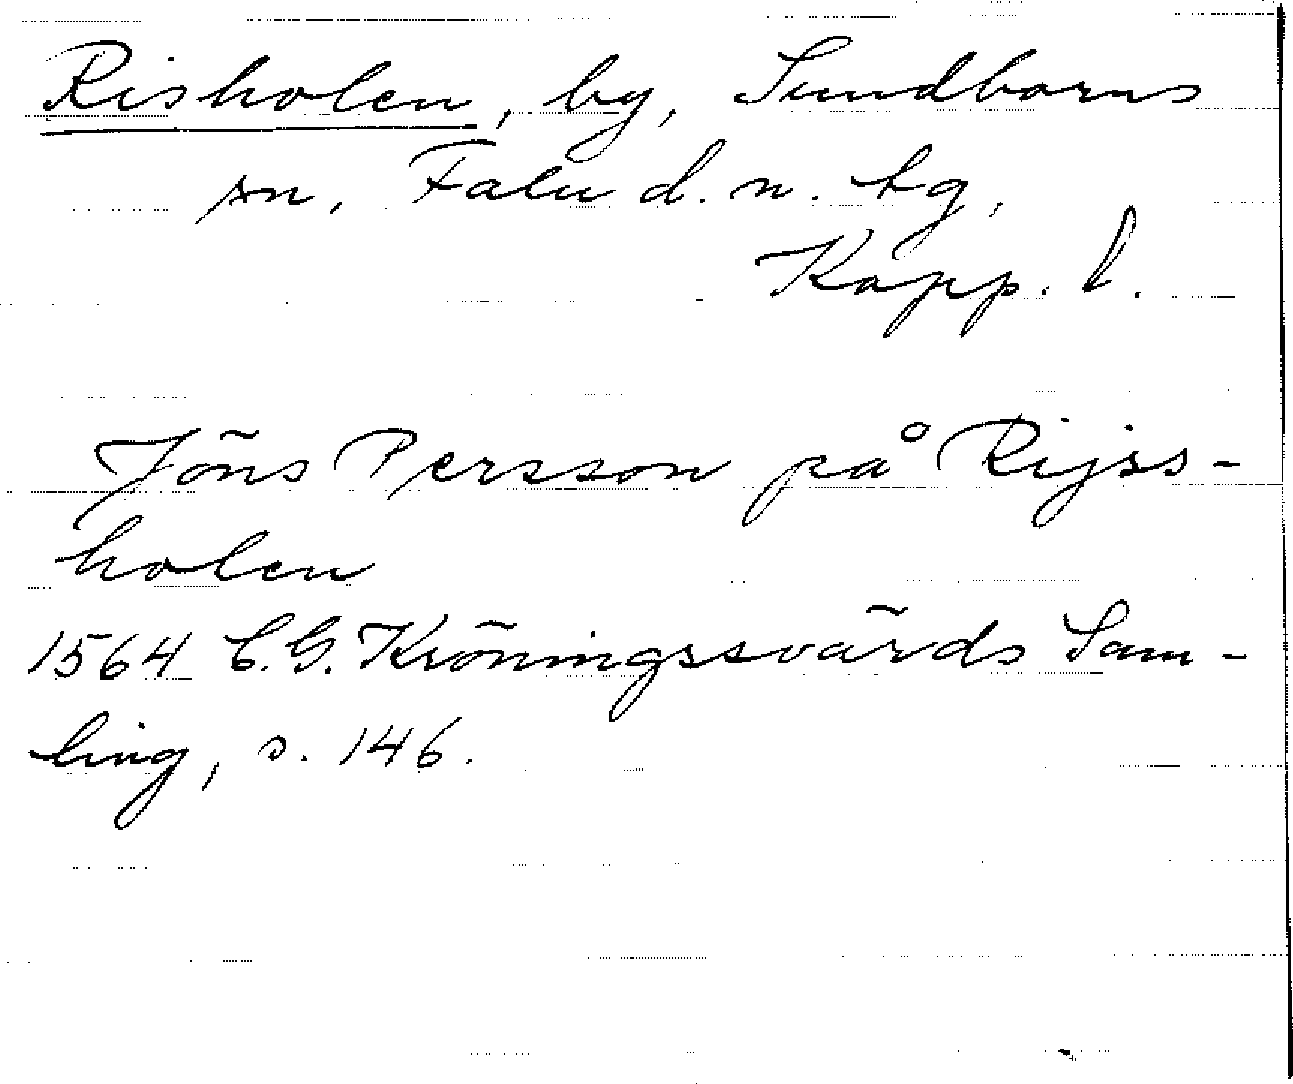 Risholen, by, Sundborns
sn, Falu d. n. tg,
Kopp. l.
Jöns Persson på Rijss-
holen
1564 C.G. Kröningssvärds Sam-
ling, s. 146.